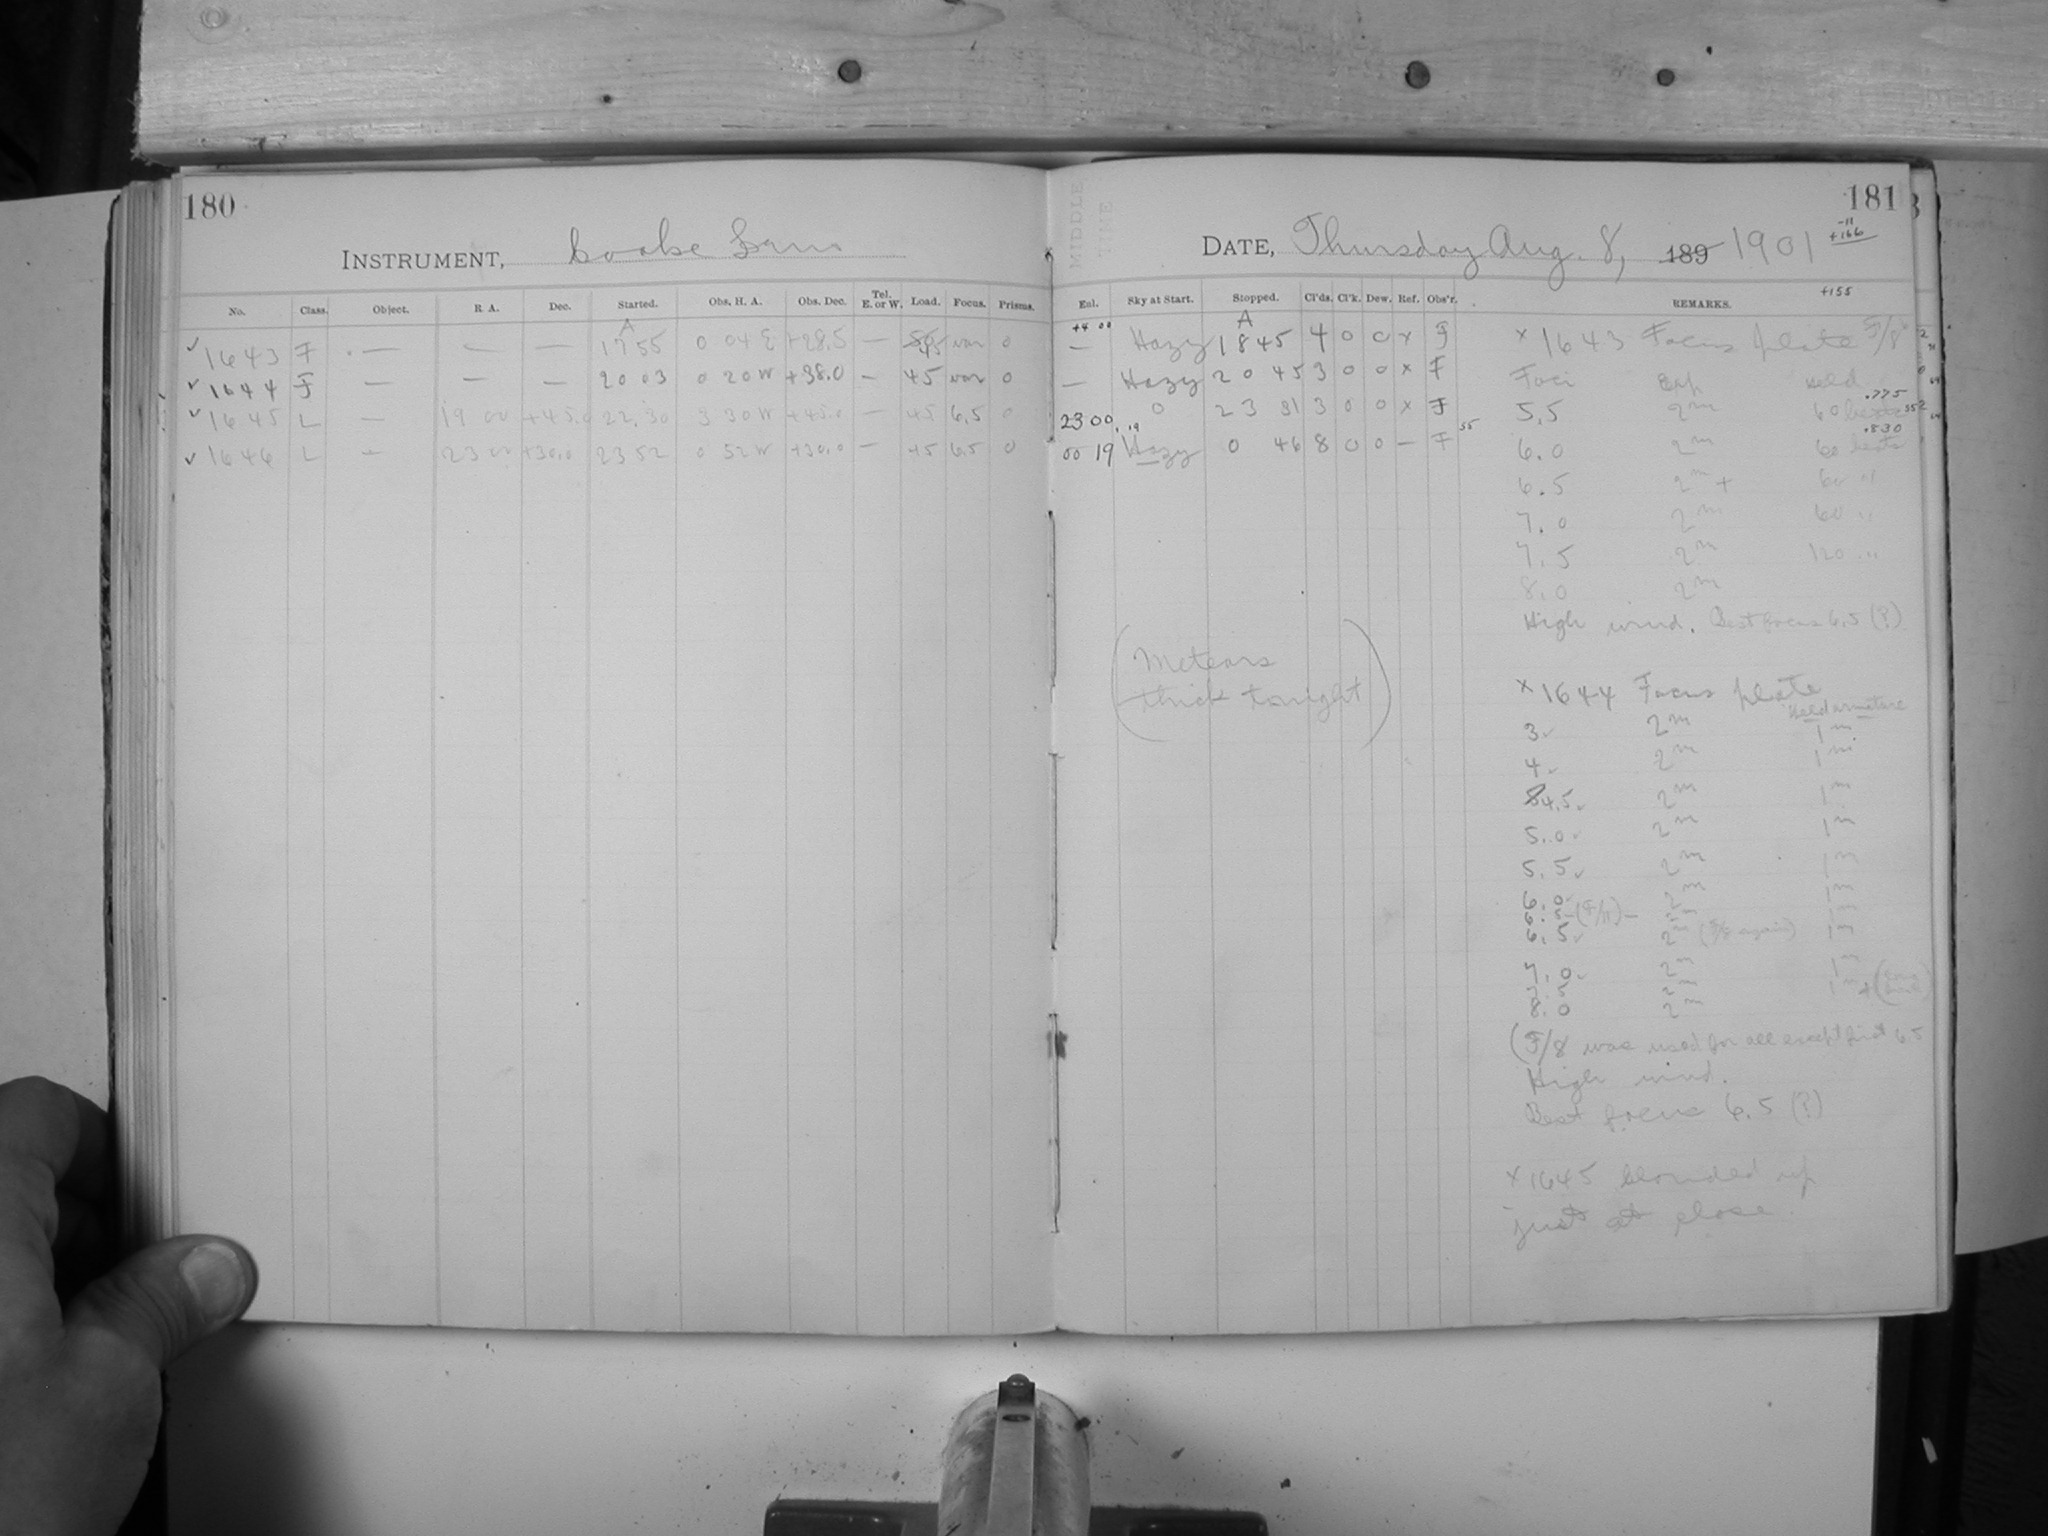 180
INSTRUMENT, Cooke Lens
No. Class. Object. R. A. Dec. Started. Obs. H. A. Obs. Dec. Tel. E. or W. Load. Focus. Prisms.
A
1643 F — — — 17 55 0 04 E +28.5 — 45 var 0
1644 F — — — 20 03 0 20 W +38.0 — 45 var 0
1645 L — 19 00 +45.0 22 30 3 30 W +45.0 — 45 6.5 0
1646 L — 23 00 +30.0 23 52 0 52 W +30.0 — 45 6.5 0
181
MIDDLE
TIME
DATE, Thursday Aug. 8, 189 1901
-11
+166
+155
Exl. Sky at Start. Stopped. Cl'ds. Cl'k. Dew. Ref. Obs'r. REMARKS.
+4 00 A
— Hazy 18 45 4 0 0 x F
— Hazy 20 45 3 0 0 x F
23 00 0 23 31 3 0 0 x F
00 19 Hazy 0 46 8 0 0 — F
(Meteors
thick tonight)
x 1643 Focus plate F/8
Foci Exp Held
.775
5.5 2m 60 beats
.830
6.0 2m 60 beats
6.5 2m + 60 "
7.0 2m 60 "
7.5 2m 120 "
8.0 2m
High wind. Best focus 6.5 (?)
x 1644 Focus plate
Held armature
3 2m 1m
4 2m 1m
4.5 2m 1m
5.0 2m 1m
5.5 2m 1m
6.0 2m 1m
6.5 (F/11) — 2m 1m
6.5 2m (F/8 again) 1m
7.0 2m 1m
7.5 2m 1m +
8.0 2m
(F/8 was used for all except first 6.5
High wind.
Best focus 6.5 (?)
x 1645 Clouded up
just at close.